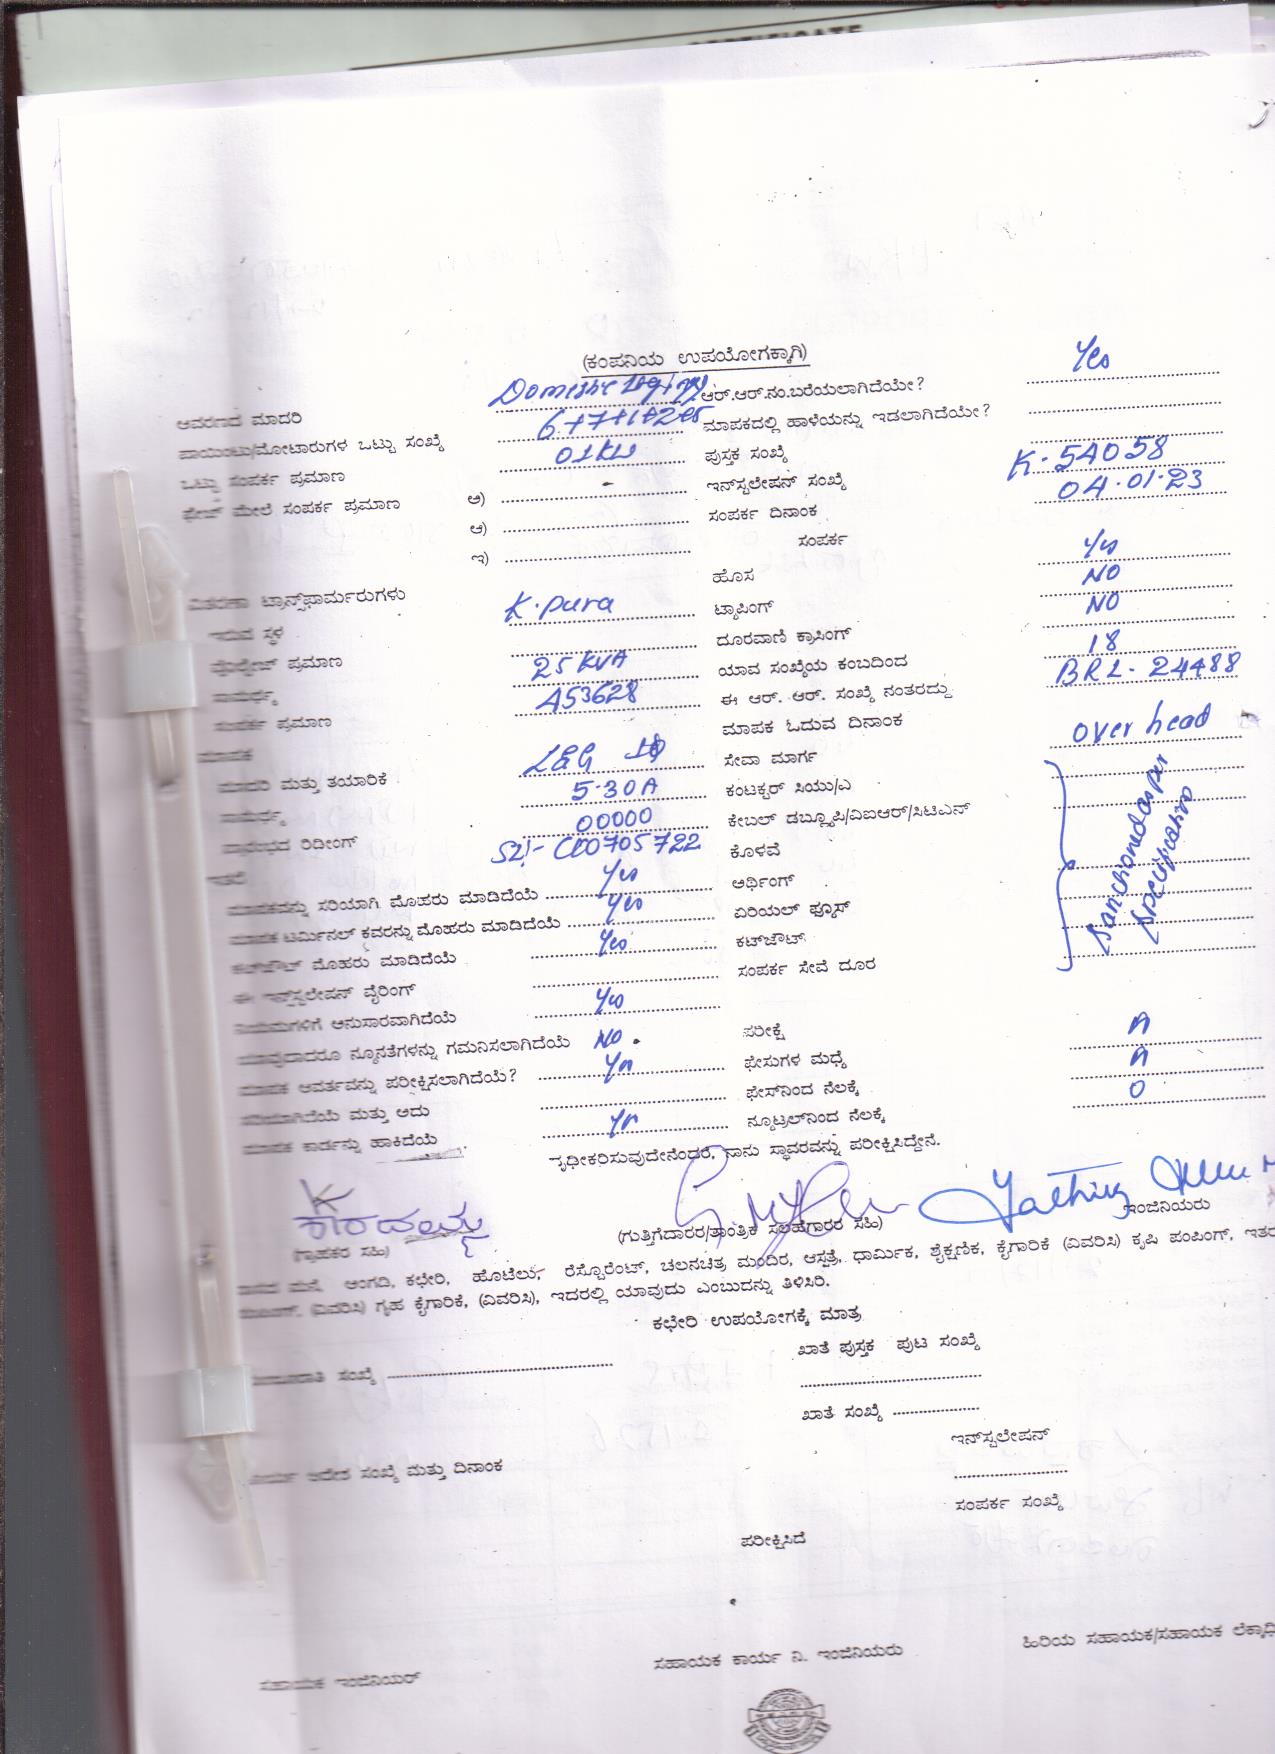 (ಕಂಪನಿಯ ಉಪಯೋಗಕ್ಕಾಗಿ)
ಆವರಣದ ಮಾದರಿ Domestic Lighting ಆರ್.ಆರ್.ನಂ.ಬರೆಯಲಾಗಿದೆಯೇ? Yes
ಪಾಯಿಂಟು/ಮೋಟಾರುಗಳ ಒಟ್ಟು ಸಂಖ್ಯೆ 6+7+1+2 ಮಾಪಕದಲ್ಲಿ ಹಾಳೆಯನ್ನು ಇಡಲಾಗಿದೆಯೇ?
ಒಟ್ಟು ಸಂಪರ್ಕ ಪ್ರಮಾಣ 01KW ಪುಸ್ತಕ ಸಂಖ್ಯೆ
ಫೇಜ್ ಮೇಲೆ ಸಂಪರ್ಕ ಪ್ರಮಾಣ ಅ) ಇನ್‌ಸ್ಟಲೇಷನ್ ಸಂಖ್ಯೆ K.5A058
ಆ) ಸಂಪರ್ಕ ದಿನಾಂಕ 04.01.23
ಇ) ಸಂಪರ್ಕ
ಹೊಸ Yes
ವಿತರಣಾ ಟ್ರಾನ್ಸ್‌ಫಾರ್ಮರುಗಳು K.pura ಟ್ಯಾಪಿಂಗ್ NO
ಇರುವ ಸ್ಥಳ ದೂರವಾಣಿ ಕ್ರಾಸಿಂಗ್ NO
ವೋಲ್ಟೇಜ್ ಪ್ರಮಾಣ 25KVA ಯಾವ ಸಂಖ್ಯೆಯ ಕಂಬದಿಂದ 18
ಸಾಮರ್ಥ್ಯ A53628 ಈ ಆರ್. ಆರ್. ಸಂಖ್ಯೆ ನಂತರದ್ದು BRL-24488
ಸಂಪರ್ಕ ಪ್ರಮಾಣ ಮಾಪಕ ಓದುವ ದಿನಾಂಕ
ಮಾಪಕ L&G ಸೇವಾ ಮಾರ್ಗ over head
ಮಾದರಿ ಮತ್ತು ತಯಾರಿಕೆ 5-30A ಕಂಟಕ್ಟರ್ ಸಿಯು/ಎ
ಸಾಮರ್ಥ್ಯ 00000 ಕೇಬಲ್ ಡಬ್ಲ್ಯೂಪಿ/ವಿಐಆರ್/ಸಿಟಿಎಸ್
ಪ್ರಾರಂಭದ ರಿಡೀಂಗ್ Sl:- C00705722 ಕೊಳವೆ
ಇತರೆ ಅರ್ಥಿಂಗ್
ಮಾಪಕವನ್ನು ಸರಿಯಾಗಿ ಮೊಹರು ಮಾಡಿದೆಯೆ Yes ಏರಿಯಲ್ ಫ್ಯೂಸ್
ಮಾಪಕ ಟರ್ಮಿನಲ್ ಕವರನ್ನು ಮೊಹರು ಮಾಡಿದೆಯೆ Yes ಕಟ್‌ಔಟ್
ಕಟ್‌ಔಟ್ ಮೊಹರು ಮಾಡಿದೆಯೆ Yes ಸಂಪರ್ಕ ಸೇವೆ ದೂರ
ಈ ಇನ್‌ಸ್ಟಲೇಷನ್ ವೈರಿಂಗ್
ನಿಯಮಗಳಿಗೆ ಅನುಸಾರವಾಗಿದೆಯೆ Yes
ಯಾವುದಾದರೂ ನ್ಯೂನತೆಗಳನ್ನು ಗಮನಿಸಲಾಗಿದೆಯೆ NO. ಪರೀಕ್ಷೆ A
ಮಾಪಕ ಆವರ್ತವನ್ನು ಪರೀಕ್ಷಿಸಲಾಗಿದೆಯೆ? Yes ಫೇಸುಗಳ ಮಧ್ಯೆ A
ಸರಿಯಾಗಿದೆಯೆ ಮತ್ತು ಅದು ಫೇಸ್‌ನಿಂದ ನೆಲಕ್ಕೆ 0
ಮಾಪಕ ಕಾರ್ಡನ್ನು ಹಾಕಿದೆಯೆ Yes ನ್ಯೂಟ್ರಲ್‌ನಿಂದ ನೆಲಕ್ಕೆ
Sanctioned as per
specification
ದೃಢೀಕರಿಸುವುದೇನೆಂದರೆ, ನಾನು ಸ್ಥಾವರವನ್ನು ಪರೀಕ್ಷಿಸಿದ್ದೇನೆ.
(ಗ್ರಾಹಕರ ಸಹಿ) (ಗುತ್ತಿಗೆದಾರರ/ತಾಂತ್ರಿಕ ಸಲಹೆಗಾರರ ಸಹಿ) ಇಂಜಿನಿಯರು
ವಾಸದ ಮನೆ, ಅಂಗಡಿ, ಕಛೇರಿ, ಹೊಟೆಲು, ರೆಸ್ಟೋರೆಂಟ್, ಚಲನಚಿತ್ರ ಮಂದಿರ, ಆಸ್ಪತ್ರೆ, ಧಾರ್ಮಿಕ, ಶೈಕ್ಷಣಿಕ, ಕೈಗಾರಿಕೆ (ವಿವರಿಸಿ) ಕೃಷಿ ಪಂಪಿಂಗ್, ಇತರ
(ವಿವರಿಸಿ) ಗೃಹ ಕೈಗಾರಿಕೆ, (ವಿವರಿಸಿ), ಇದರಲ್ಲಿ ಯಾವುದು ಎಂಬುದನ್ನು ತಿಳಿಸಿರಿ.
ಕಛೇರಿ ಉಪಯೋಗಕ್ಕೆ ಮಾತ್ರ
ಖಾತೆ ಪುಸ್ತಕ ಪುಟ ಸಂಖ್ಯೆ
ಸಂಖ್ಯೆ
ಖಾತೆ ಸಂಖ್ಯೆ
ಇನ್‌ಸ್ಟಲೇಷನ್
ಆದೇಶ ಸಂಖ್ಯೆ ಮತ್ತು ದಿನಾಂಕ
ಸಂಪರ್ಕ ಸಂಖ್ಯೆ
ಪರೀಕ್ಷಿಸಿದೆ
ಸಹಾಯಕ ಇಂಜಿನಿಯರ್ ಸಹಾಯಕ ಕಾರ್ಯ ನಿ. ಇಂಜಿನಿಯರು ಹಿರಿಯ ಸಹಾಯಕ/ಸಹಾಯಕ